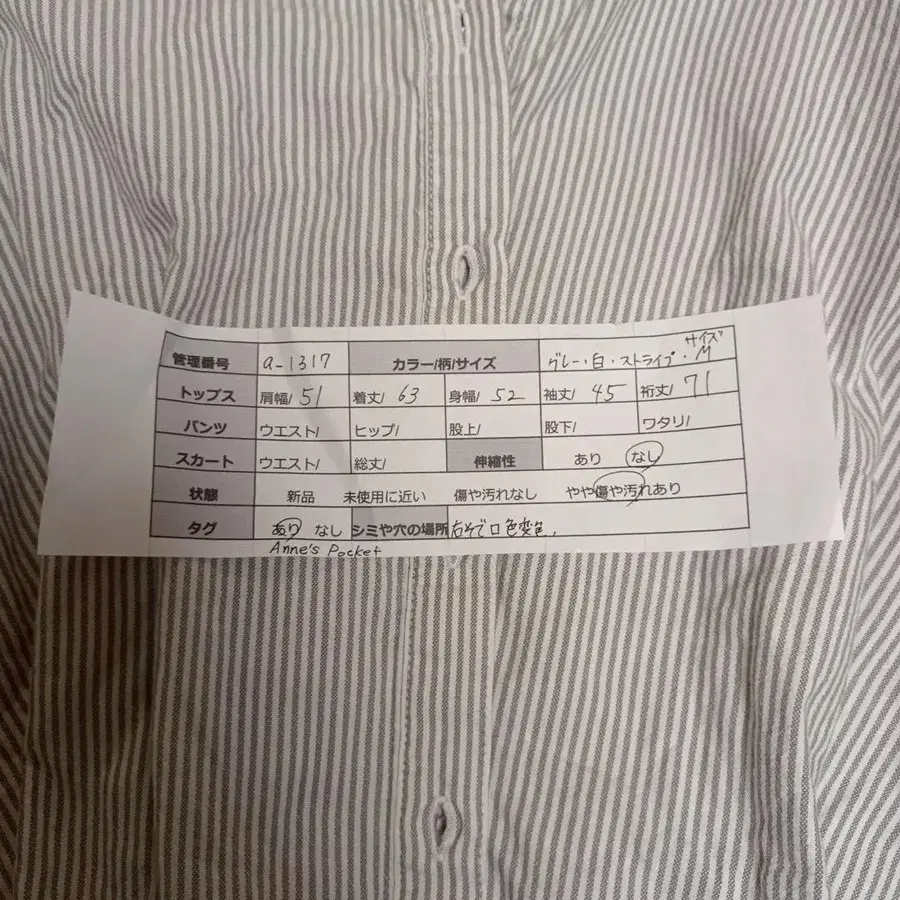 管理番号 a-1317 カラー/柄/サイズ グレー・白・ストライプ・サイズM
トップス 肩幅/ 51 着丈/ 63 身幅/ 52 袖丈/ 45 裄丈/ 71
パンツ ウエスト/ ヒップ/ 股上/ 股下/ ワタリ/
スカート ウエスト/ 総丈/ 伸縮性 あり なし
状態 新品 未使用に近い 傷や汚れなし やや傷や汚れあり
タグ あり なし シミや穴の場所 右そで口色変色.
Anne's Pocket